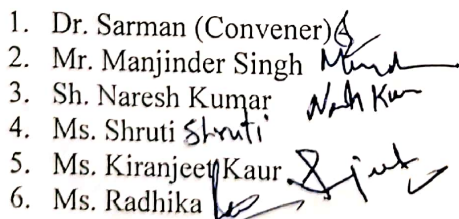 1. Dr. Sarman (Convener)
2. Mr. Manjinder Singh
3. Sh. Naresh Kumar Naresh Kumar
4. Ms. Shruti Shruti
5. Ms. Kiranjeet Kaur
6. Ms. Radhika